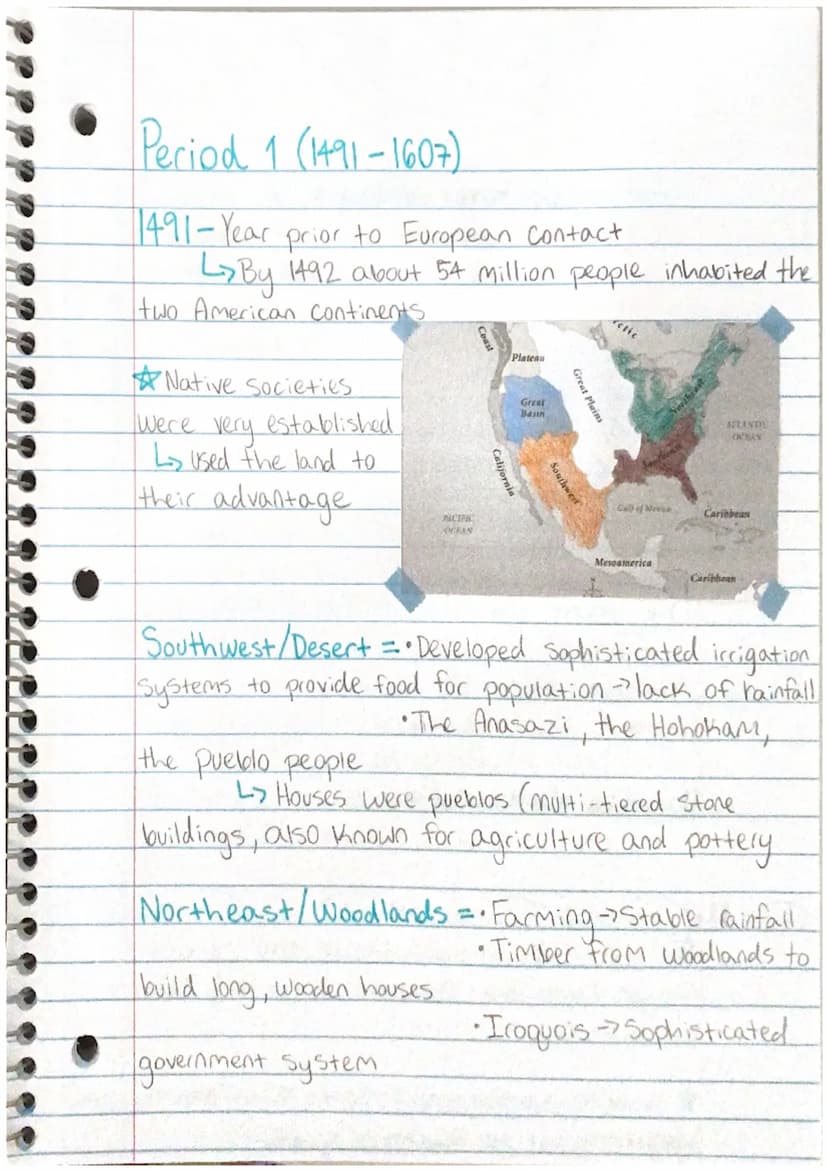 Period 1 (1491-1607)
1491-Year prior to European contact
↳By 1492 about 54 million people inhabited the
two American continents
☆Native societies
were very established
↳ used the land to
their advantage
Coast
Plateau
Great Plains
Great
Basin
Northeast
ATLANTIC
OCEAN
California
Southwest
Gulf of Mexico
Caribbean
PACIFIC
OCEAN
Mesoamerica
Caribbean
Southwest/Desert = •Developed sophisticated irrigation
systems to provide food for population →lack of rainfall
•The Anasazi, the Hohokam,
the pueblo people
↳ Houses were pueblos (multi-tiered stone
buildings, also known for agriculture and pottery
Northeast/Woodlands = •Farming→Stable rainfall
•Timber from woodlands to
build long, wooden houses
•Iroquois →Sophisticated
government system